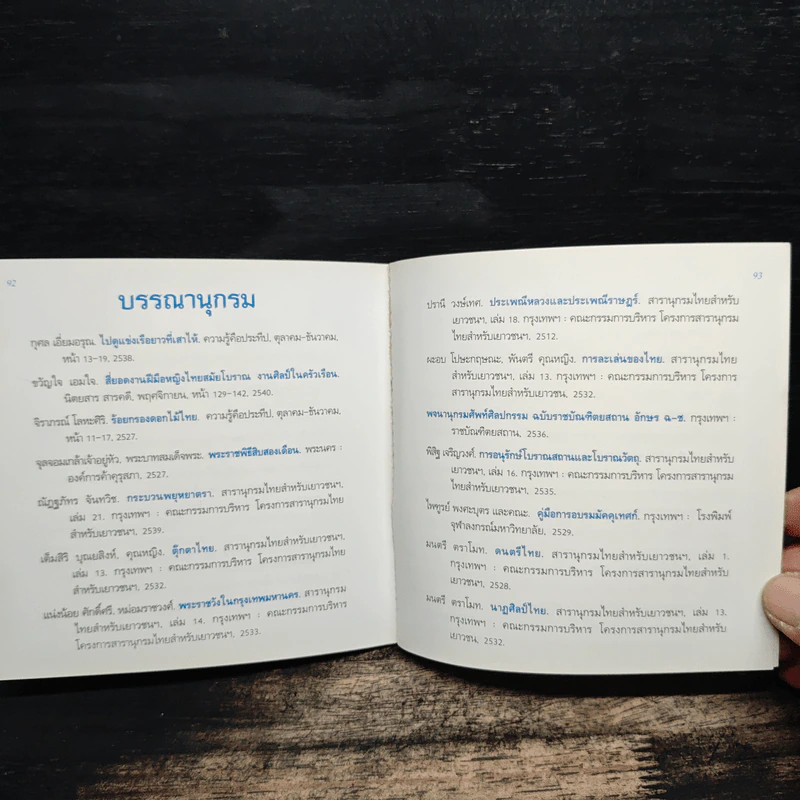 92
บรรณานุกรม
กุศล เอี่ยมอรุณ. ไปดูแข่งเรือยาวที่เสาไห้. ความรู้คือประทีป, ตุลาคม-ธันวาคม,
หน้า 13-19, 2538.
ขวัญใจ เอมใจ. สี่ยอดงานฝีมือหญิงไทยสมัยโบราณ งานศิลป์ในครัวเรือน.
นิตยสาร สารคดี, พฤศจิกายน, หน้า 129-142, 2540.
จิราภรณ์ โลหะศิริ. ร้อยกรองดอกไม้ไทย. ความรู้คือประทีป, ตุลาคม-ธันวาคม,
หน้า 11-17, 2527.
จุลจอมเกล้าเจ้าอยู่หัว, พระบาทสมเด็จพระ. พระราชพิธีสิบสองเดือน. พระนคร :
องค์การค้าคุรุสภา, 2527.
ณัฏฐภัทร จันทวิช. กระบวนพยุหยาตรา. สารานุกรมไทยสำหรับเยาวชนฯ,
เล่ม 21. กรุงเทพฯ : คณะกรรมการบริหาร โครงการสารานุกรมไทย
สำหรับเยาวชนฯ, 2539.
เต็มสิริ บุณยสิงห์, คุณหญิง. ตุ๊กตาไทย. สารานุกรมไทยสำหรับเยาวชนฯ,
เล่ม 13. กรุงเทพฯ : คณะกรรมการบริหาร โครงการสารานุกรมไทย
สำหรับเยาวชนฯ, 2532.
แน่งน้อย ศักดิ์ศรี, หม่อมราชวงศ์. พระราชวังในกรุงเทพมหานคร. สารานุกรม
ไทยสำหรับเยาวชนฯ, เล่ม 14. กรุงเทพฯ : คณะกรรมการบริหาร
โครงการสารานุกรมไทยสำหรับเยาวชนฯ, 2533.
93
ปรานี วงษ์เทศ. ประเพณีหลวงและประเพณีราษฎร์. สารานุกรมไทยสำหรับ
เยาวชนฯ, เล่ม 18. กรุงเทพฯ : คณะกรรมการบริหาร โครงการสารานุกรม
ไทยสำหรับเยาวชนฯ, 2512.
ผะอบ โปษะกฤษณะ, พันตรี คุณหญิง. การละเล่นของไทย. สารานุกรมไทย
สำหรับเยาวชนฯ, เล่ม 13. กรุงเทพฯ : คณะกรรมการบริหาร โครงการ
สารานุกรมไทยสำหรับเยาวชนฯ, 2532.
พจนานุกรมศัพท์ศิลปกรรม ฉบับราชบัณฑิตยสถาน อักษร ฉ-ซ. กรุงเทพฯ :
ราชบัณฑิตยสถาน, 2536.
พิสิฐ เจริญวงศ์. การอนุรักษ์โบราณสถานและโบราณวัตถุ. สารานุกรมไทยสำหรับ
เยาวชนฯ, เล่ม 16. กรุงเทพฯ : คณะกรรมการบริหาร โครงการสารานุกรม
ไทยสำหรับเยาวชนฯ, 2535.
ไพฑูรย์ พงศะบุตร และคณะ. คู่มือการอบรมมัคคุเทศก์. กรุงเทพฯ : โรงพิมพ์
จุฬาลงกรณ์มหาวิทยาลัย, 2529.
มนตรี ตราโมท. ดนตรีไทย. สารานุกรมไทยสำหรับเยาวชนฯ, เล่ม 1.
กรุงเทพฯ : คณะกรรมการบริหาร โครงการสารานุกรมไทยสำหรับเยาวชนฯ,
2528.
มนตรี ตราโมท. นาฏศิลป์ไทย. สารานุกรมไทยสำหรับเยาวชนฯ, เล่ม 13.
กรุงเทพฯ : คณะกรรมการบริหาร โครงการสารานุกรมไทยสำหรับ
เยาวชนฯ, 2532.